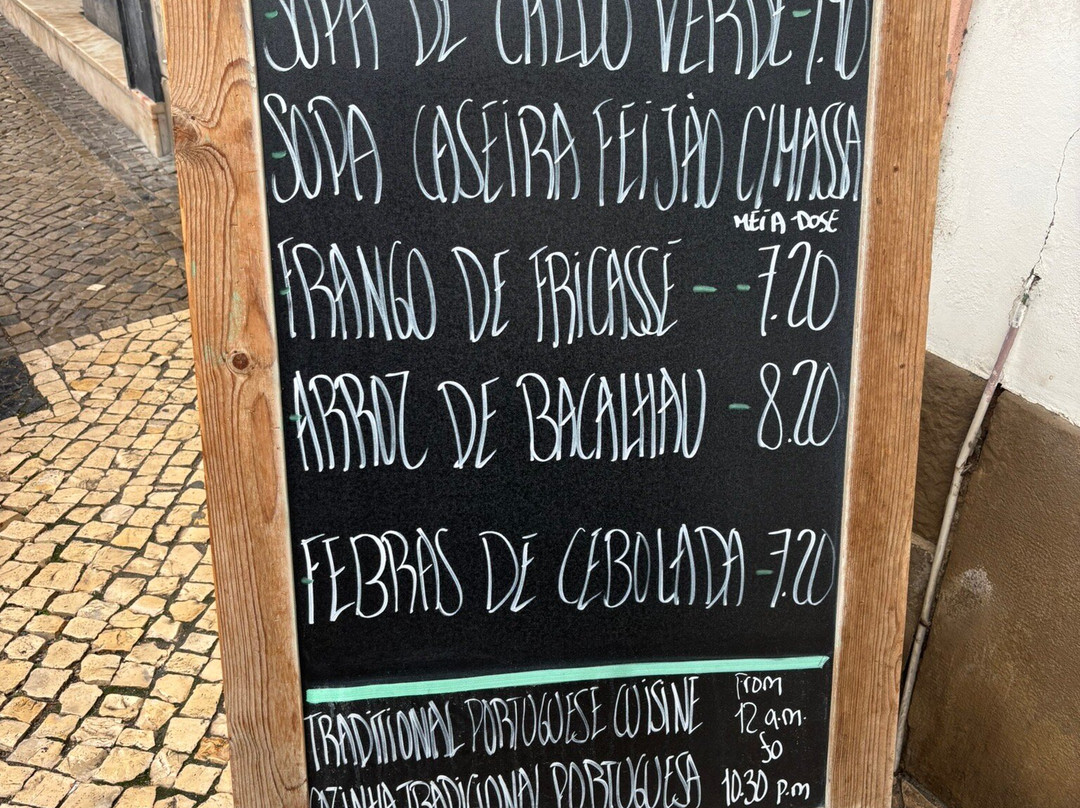 -SOPA DE CALDO VERDE-
-SOPA CASEIRA FEIJÃO C/MASSA
MEIA DOSE
-FRANGO DE FRICASSÉ -- 7.20
-ARROZ DE BACALHAU - 8.20
-FEBRAS DE CEBOLADA -7.20
TRADITIONAL PORTUGUESE CUISINE
COZINHA TRADICIONAL PORTUGUESA
From
12 a.m.
to
10.30 p.m